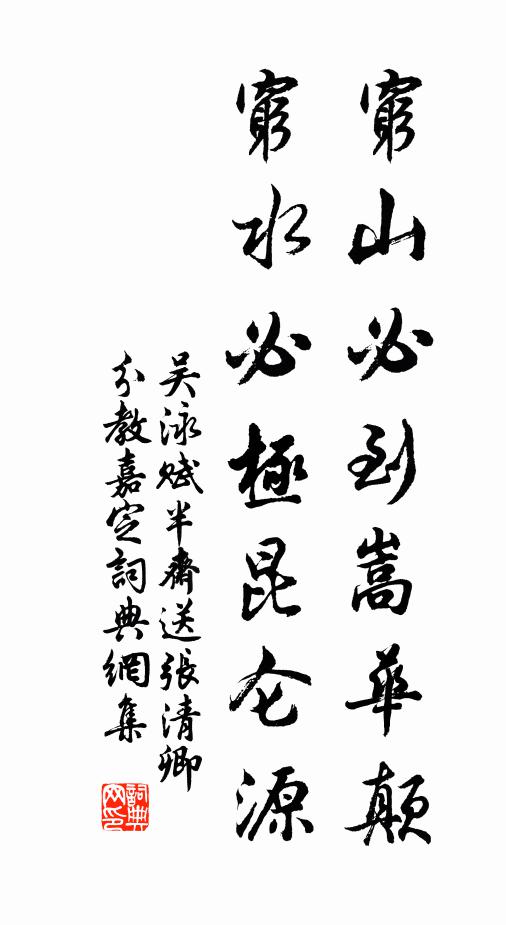 窮山必到嵩華顛
窮水必極昆仑源
吴泳赋半齋送張清卿
分教嘉定詞典網集
詞典网印